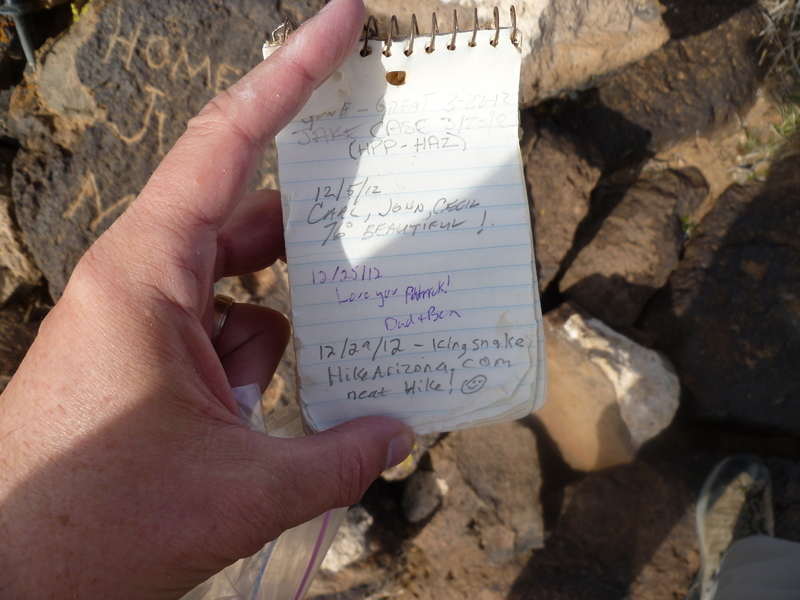 HOME
GREAT 3-22-12
JAKE CASE 3/23/12
(HPP-HAZ)
12/5/12
CARL, JOHN, CECIL
76° BEAUTIFUL!
12/25/12
Love you Patrick!
Dad + Ben
12/29/12 - Kingsnake
HikeArizona.com
neat Hike! ☺